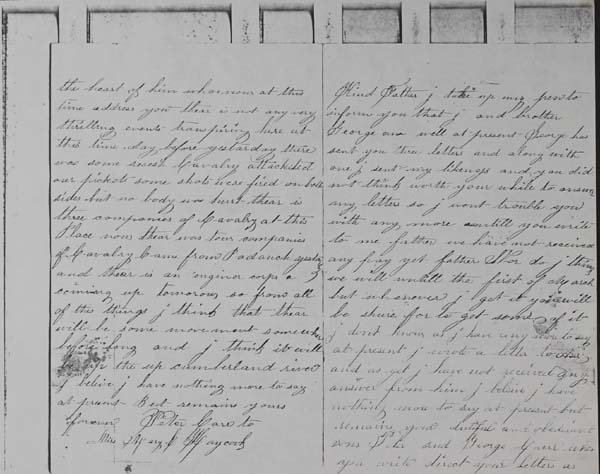 the heart of him whom now at this
time address you there is not any very
thrilling events transpiring here at
this time day before yestarday there
was some secesh Cavalry attackted
our pickets some shots were fired on both
sides but no body was hurt thear is
three companies of Cavalry at this
Place now thear was four companies
of Cavalry Came from Paducah yestady
and thear is an enginor corps a
comming up tomorow so from all
of this things j think that thear
will be some movement somewher
before long and j think it will
be up the up cumberland river
j belive j have nothing more to say
at present But remains yours
forever Peter Carr to
Miss Mary J Haycock
Kind Father j take up my pen to
inform you that j and brother
George are well at present George has
sent you three letters and along with
one j sent my likeness and you did
not think worth your while to answer
any letter so j wont trouble you
with any more untill you write
to me father we have not received
any pay yet father Nor do j think
we will untill the first of March
but whenever j get it you will
be shure for to get some of it
j dont know as j have any more to say
at present j wrote a letter to
and as yet j have not received any
answer from him j belive j have
nothing more to say at present but
remains your dutiful and obedient
sons Peter and George Carr when
you write direct your letters as